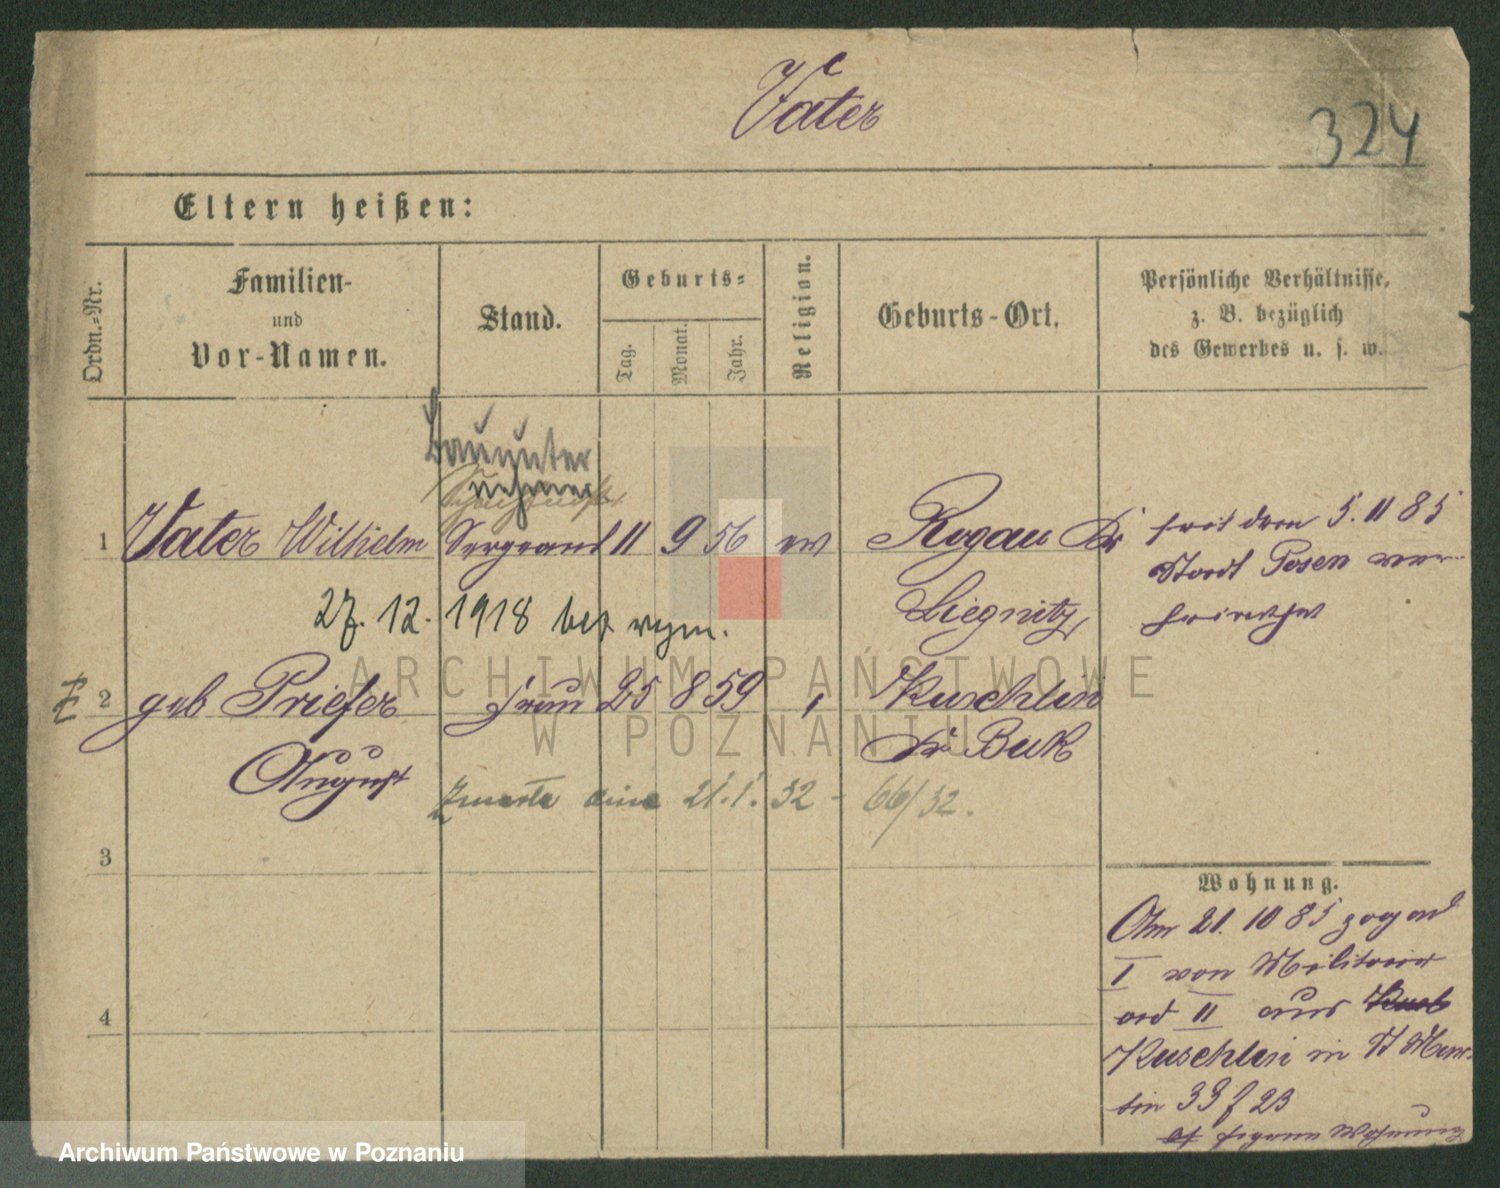 Vater
324
Eltern heißen:
Ordn.=Nr.
Familien-
und
Vor-Namen.
Stand.
Geburts=
Tag.
Monat.
Jahr.
Religion.
Geburts-Ort.
Persönliche Verhältnisse,
z. B. bezüglich
des Gewerbes u. s. w.
Bauunter
nehmer
1 Vater Wilhelm Sergeant 11 9 56 ev Rogau Kr
Liegnitz
seit dem 5. 11 85
Stadt Posen ver-
heirathet
27. 12. 1918
2 geb Priefer Frau 25 8 59 Kuschlin
August Kr Buk
21. 1. 32 - 66/32.
3
4
Wohnung.
Am 21. 10 85 zog
I von Militair
II aus
Kuschlin in St Mar-
tin 33 f 23
ARCHIWUM PAŃSTWOWE
W POZNANIU
Archiwum Państwowe w Poznaniu